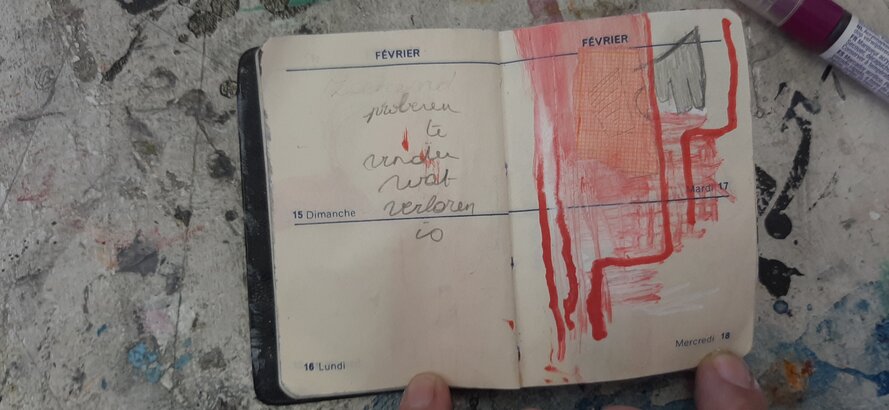 FÉVRIER
proberen
te
vinden
wat
verloren
is
15 Dimanche
16 Lundi
FÉVRIER
Mardi 17
Mercredi 18